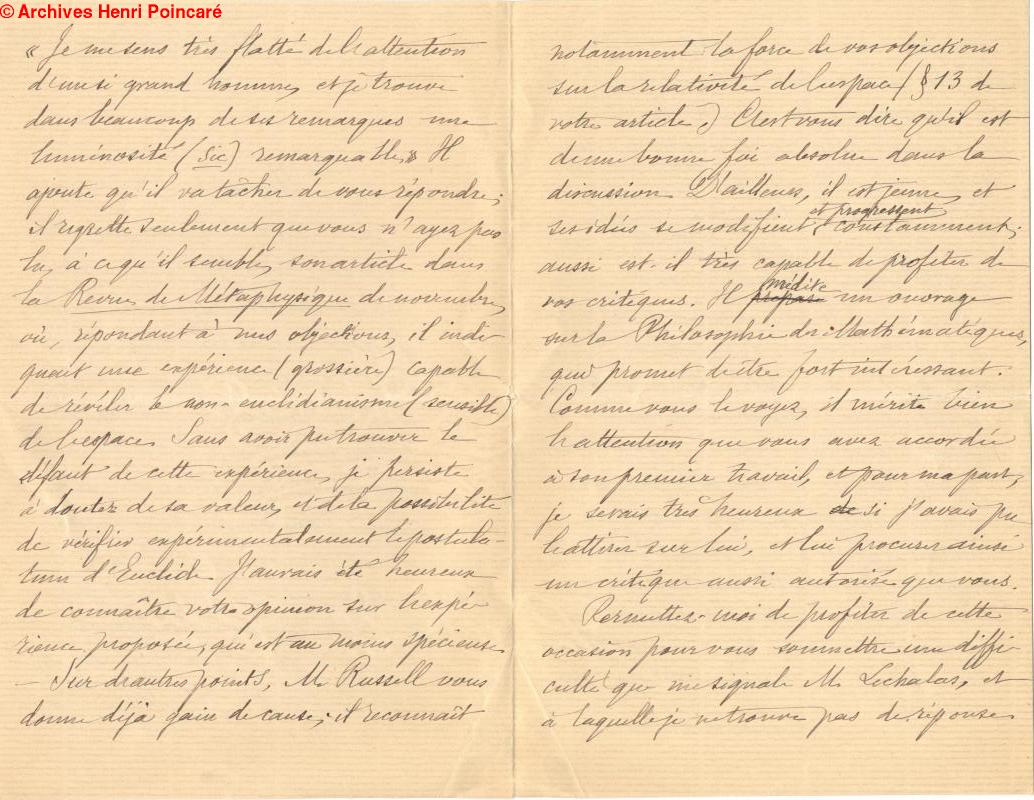 © Archives Henri Poincaré
« Je me sens très flatté de l'attention
d'un si grand homme, et je trouve
dans beaucoup de ses remarques une
luminosité (sic) remarquable » Il
ajoute qu'il va tâcher de vous répondre ;
il regrette seulement que vous n'ayez pas
lu, à ce qu'il semble, son article dans
la Revue de Métaphysique de novembre,
où, répondant à mes objections, il indi-
quait une expérience (grossière) capable
de révéler le non-euclidianisme (sensible)
de l'espace. Sans avoir pu trouver le
défaut de cette expérience, je persiste
à douter de sa valeur, et de la possibilité
de vérifier expérimentalement le postula-
tum d'Euclide. J'aurais été heureux
de connaître votre opinion sur l'expé-
rience proposée, qui est au moins spécieuse.
— Sur d'autres points, M. Russell vous
donne déjà gain de cause ; il reconnaît
notamment la force de vos objections
sur la relativité de l'espace (§ 13 de
votre article.) C'est vous dire qu'il est
d'une bonne foi absolue dans la
discussion. D'ailleurs, il est jeune, et
ses idées se modifient et progressent constamment ;
aussi est-il très capable de profiter de
vos critiques. Il prépare médite un ouvrage
sur la Philosophie des Mathématiques,
qui promet d'être fort intéressant.
Comme vous le voyez, il mérite bien
l'attention que vous avez accordée
à son premier travail, et pour ma part,
je serais très heureux de si j'avais pu
l'attirer sur lui, et lui procurer ainsi
un critique aussi autorisé que vous.
Permettez-moi de profiter de cette
occasion pour vous soumettre une diffi-
culté que me signale M. Lechalas, et
à laquelle je ne trouve pas de réponse